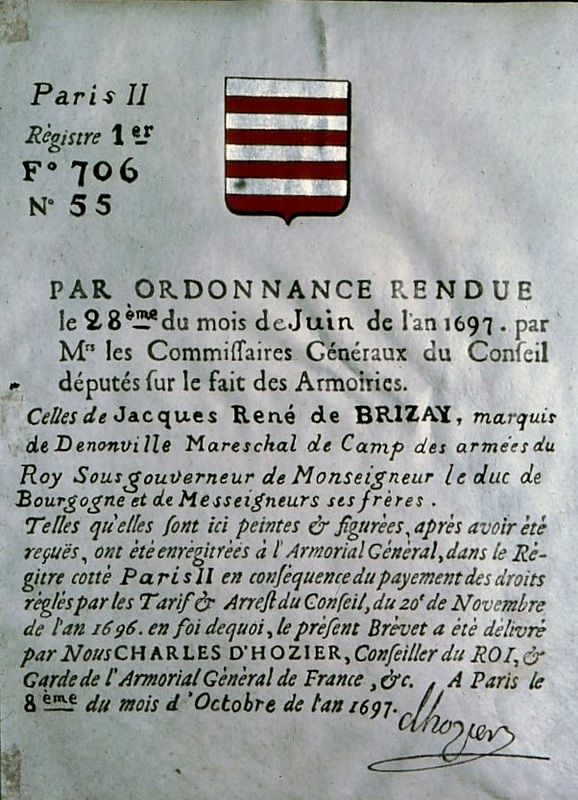 Paris II
Régistre 1er
F° 706
N° 55
PAR ORDONNANCE RENDUE
le 28ème du mois de Juin de l'an 1697. par
Mrs les Commiſſaires Généraux du Conſeil
députés ſur le fait des Armoiries.
Celles de Jacques René de BRIZAY, marquis
de Denonville Mareschal de Camp des armées du
Roy Sousgouverneur de Monseigneur le duc de
Bourgogne et de Messeigneurs ses frères.
Telles qu'elles ſont ici peintes & figurées, après avoir été
reçuës, ont été enrégitréés à l'Armorial Général, dans le Ré-
gitre cotté Paris II en conſéquence du payement des droits
réglés par les Tarif & Arreſt du Conſeil, du 20e de Novembre
de l'an 1696. en foi dequoi, le préſent Brévet a été délivré
par Nous CHARLES D'HOZIER, Conſeiller du ROI, &
Garde de l'Armorial Général de France, &c. A Paris le
8ème du mois d'Octobre de l'an 1697.
dhozier